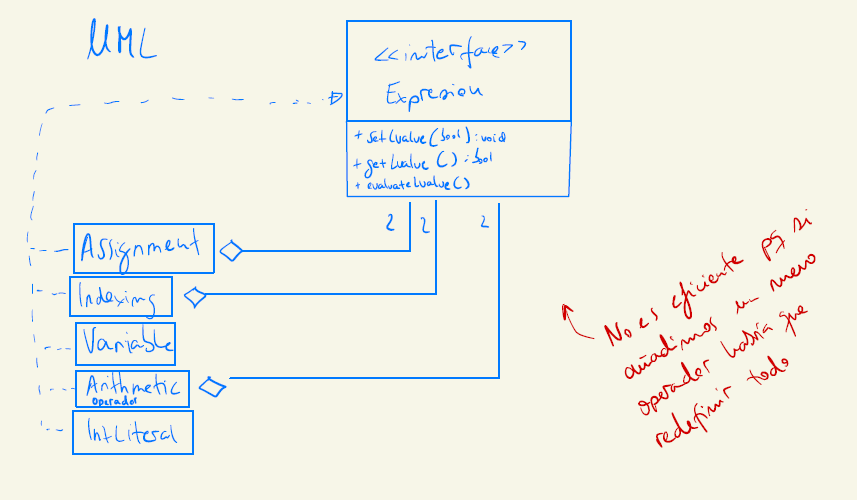 UML
<<interface>>
Expresion
+ setLvalue(bool): void
+ getLvalue(): bool
+ evaluateLvalue()
2
2
2
Assignment
Indexing
Variable
Arithmetic
operador
IntLiteral
No es eficiente pq si
añadimos un nuevo
operador habría que
redefinir todo